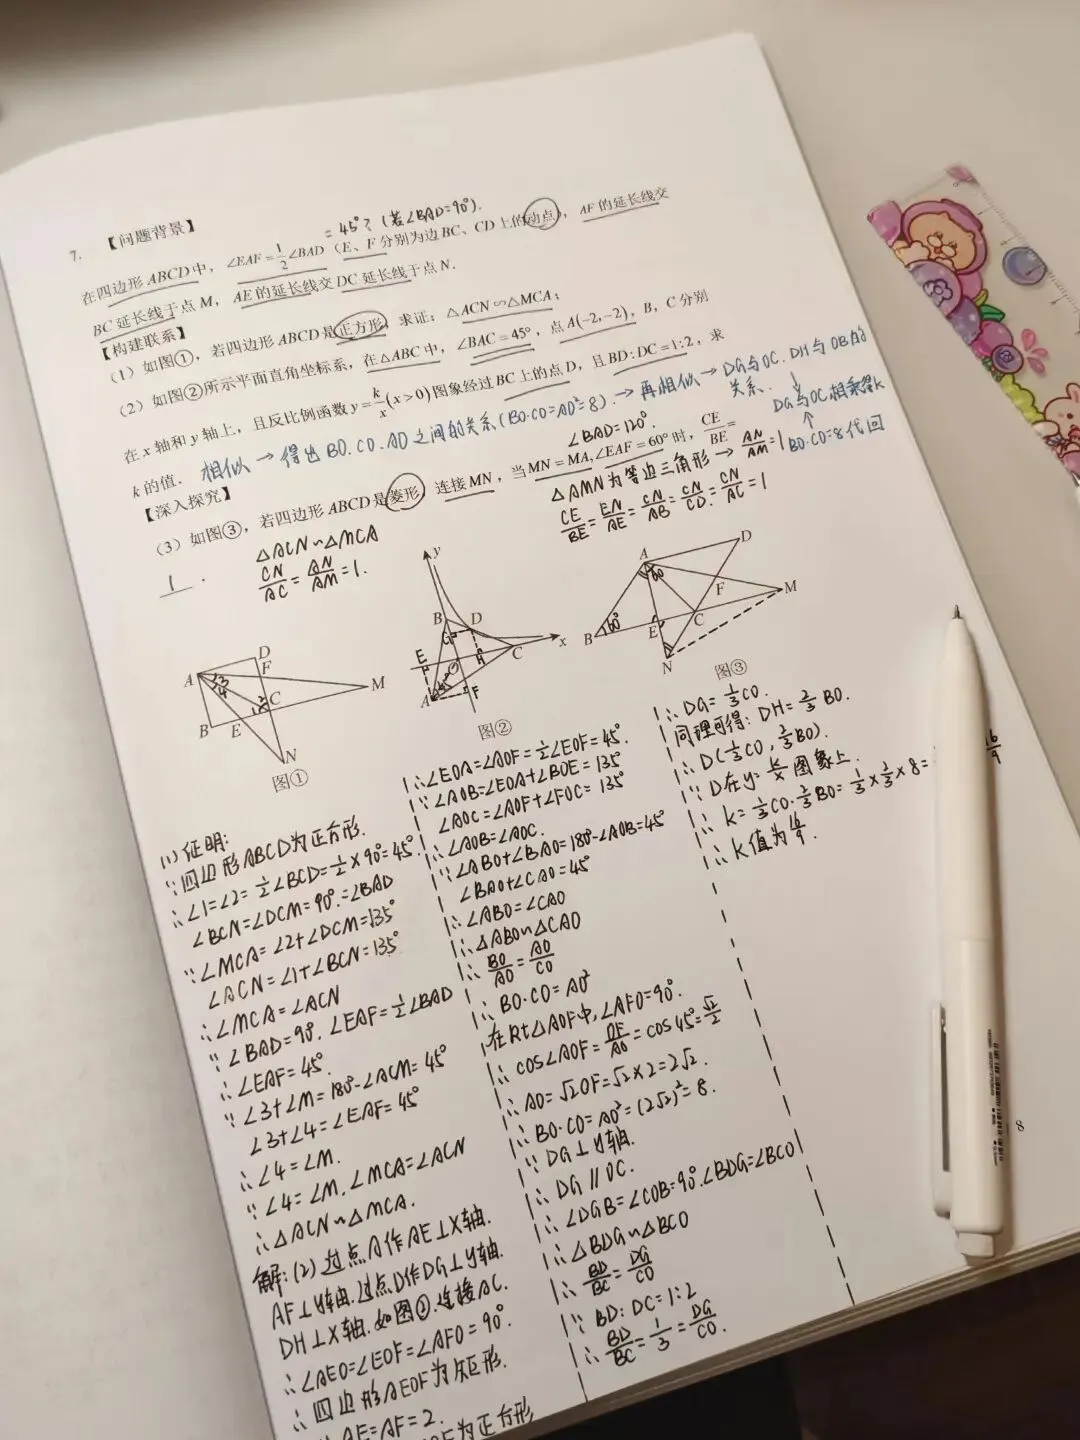 7. 【问题背景】
= 45°? (若∠BAD=90°).
在四边形ABCD中，∠EAF=1/2∠BAD（E、F分别为边BC、CD上的动点），AF的延长线交
BC延长线于点M，AE的延长线交DC延长线于点N．
【构建联系】
（1）如图①，若四边形ABCD是正方形，求证：△ACN∽△MCA；
（2）如图②所示平面直角坐标系，在△ABC中，∠BAC=45°，点A(−2,−2)，B，C分别
在x轴和y轴上，且反比例函数y=k/x(x>0)图象经过BC上的点D，且BD:DC=1:2，求
k的值．
相似→得出BO.CO.AO之间的关系(BO·CO=AO²=8).→再相似→DG与OC.DH与OB的
关系.
DG与OC相乘得k
BO·CO=8代回
【深入探究】
∠BAD=120°.
（3）如图③，若四边形ABCD是菱形，连接MN，当MN=MA,∠EAF=60°时，CE/BE=
1．
△ACN∽△MCA
CN/AC=AN/AM=1.
△AMN为等边三角形→AN/AM=1
CE/BE=EN/AE=CN/AB=CN/CD=CN/AC=1
A D F M 3 4 1 2 C B E N
图①
y B D G E H C x A F
图②
A D 60° F M B 60° E C N
图③
(1)证明:
∵四边形ABCD为正方形.
∴∠1=∠2=1/2∠BCD=1/2×90°=45°
∠BCN=∠DCM=90°.=∠BAD
∵∠MCA=∠2+∠DCM=135°
∠ACN=∠1+∠BCN=135°
∴∠MCA=∠ACN
∵∠BAD=90°.∠EAF=1/2∠BAD
∴∠EAF=45°.
∵∠3+∠M=180°-∠ACM=45°
∠3+∠4=∠EAF=45°
∴∠4=∠M.
∵∠4=∠M.∠MCA=∠ACN
∴△ACN∽△MCA.
解:(2)过点A作AE⊥X轴.
AF⊥Y轴.过点D作DG⊥Y轴.
DH⊥X轴.如图②.连接AC.
∴∠AEO=∠EOF=∠AFO=90°.
∴四边形AEOF为矩形.
∵AE=AF=2.
为正方形
∴∠EOA=∠AOF=1/2∠EOF=45°.
∵∠AOB=∠EOA+∠BOE=135°
∠AOC=∠AOF+∠FOC=135°
∴∠AOB=∠AOC.
∵∠ABO+∠BAO=180°-∠AOB=45°
∠BAO+∠CAO=45°
∴∠ABO=∠CAO
∴△ABO∽△CAO
∴BO/AO=AO/CO
∴BO·CO=AO²
在Rt△AOF中,∠AFO=90°.
∴cos∠AOF=OF/AO=cos45°=√2/2
∴AO=√2OF=√2×2=2√2.
∴BO·CO=AO²=(2√2)²=8.
∵DG⊥Y轴.
∴DG∥OC.
∴∠DGB=∠COB=90°.∠BDG=∠BCO
∴△BDG∽△BCO
∴BD/BC=DG/CO
∵BD:DC=1:2
∴BD/BC=1/3=DG/CO.
∴DG=1/3CO.
同理可得:DH=2/3BO.
∴D(1/3CO,2/3BO).
∵D在y=k/x图象上.
∴k=1/3CO·2/3BO=1/3×2/3×8=16/9
∴k值为16/9.
8